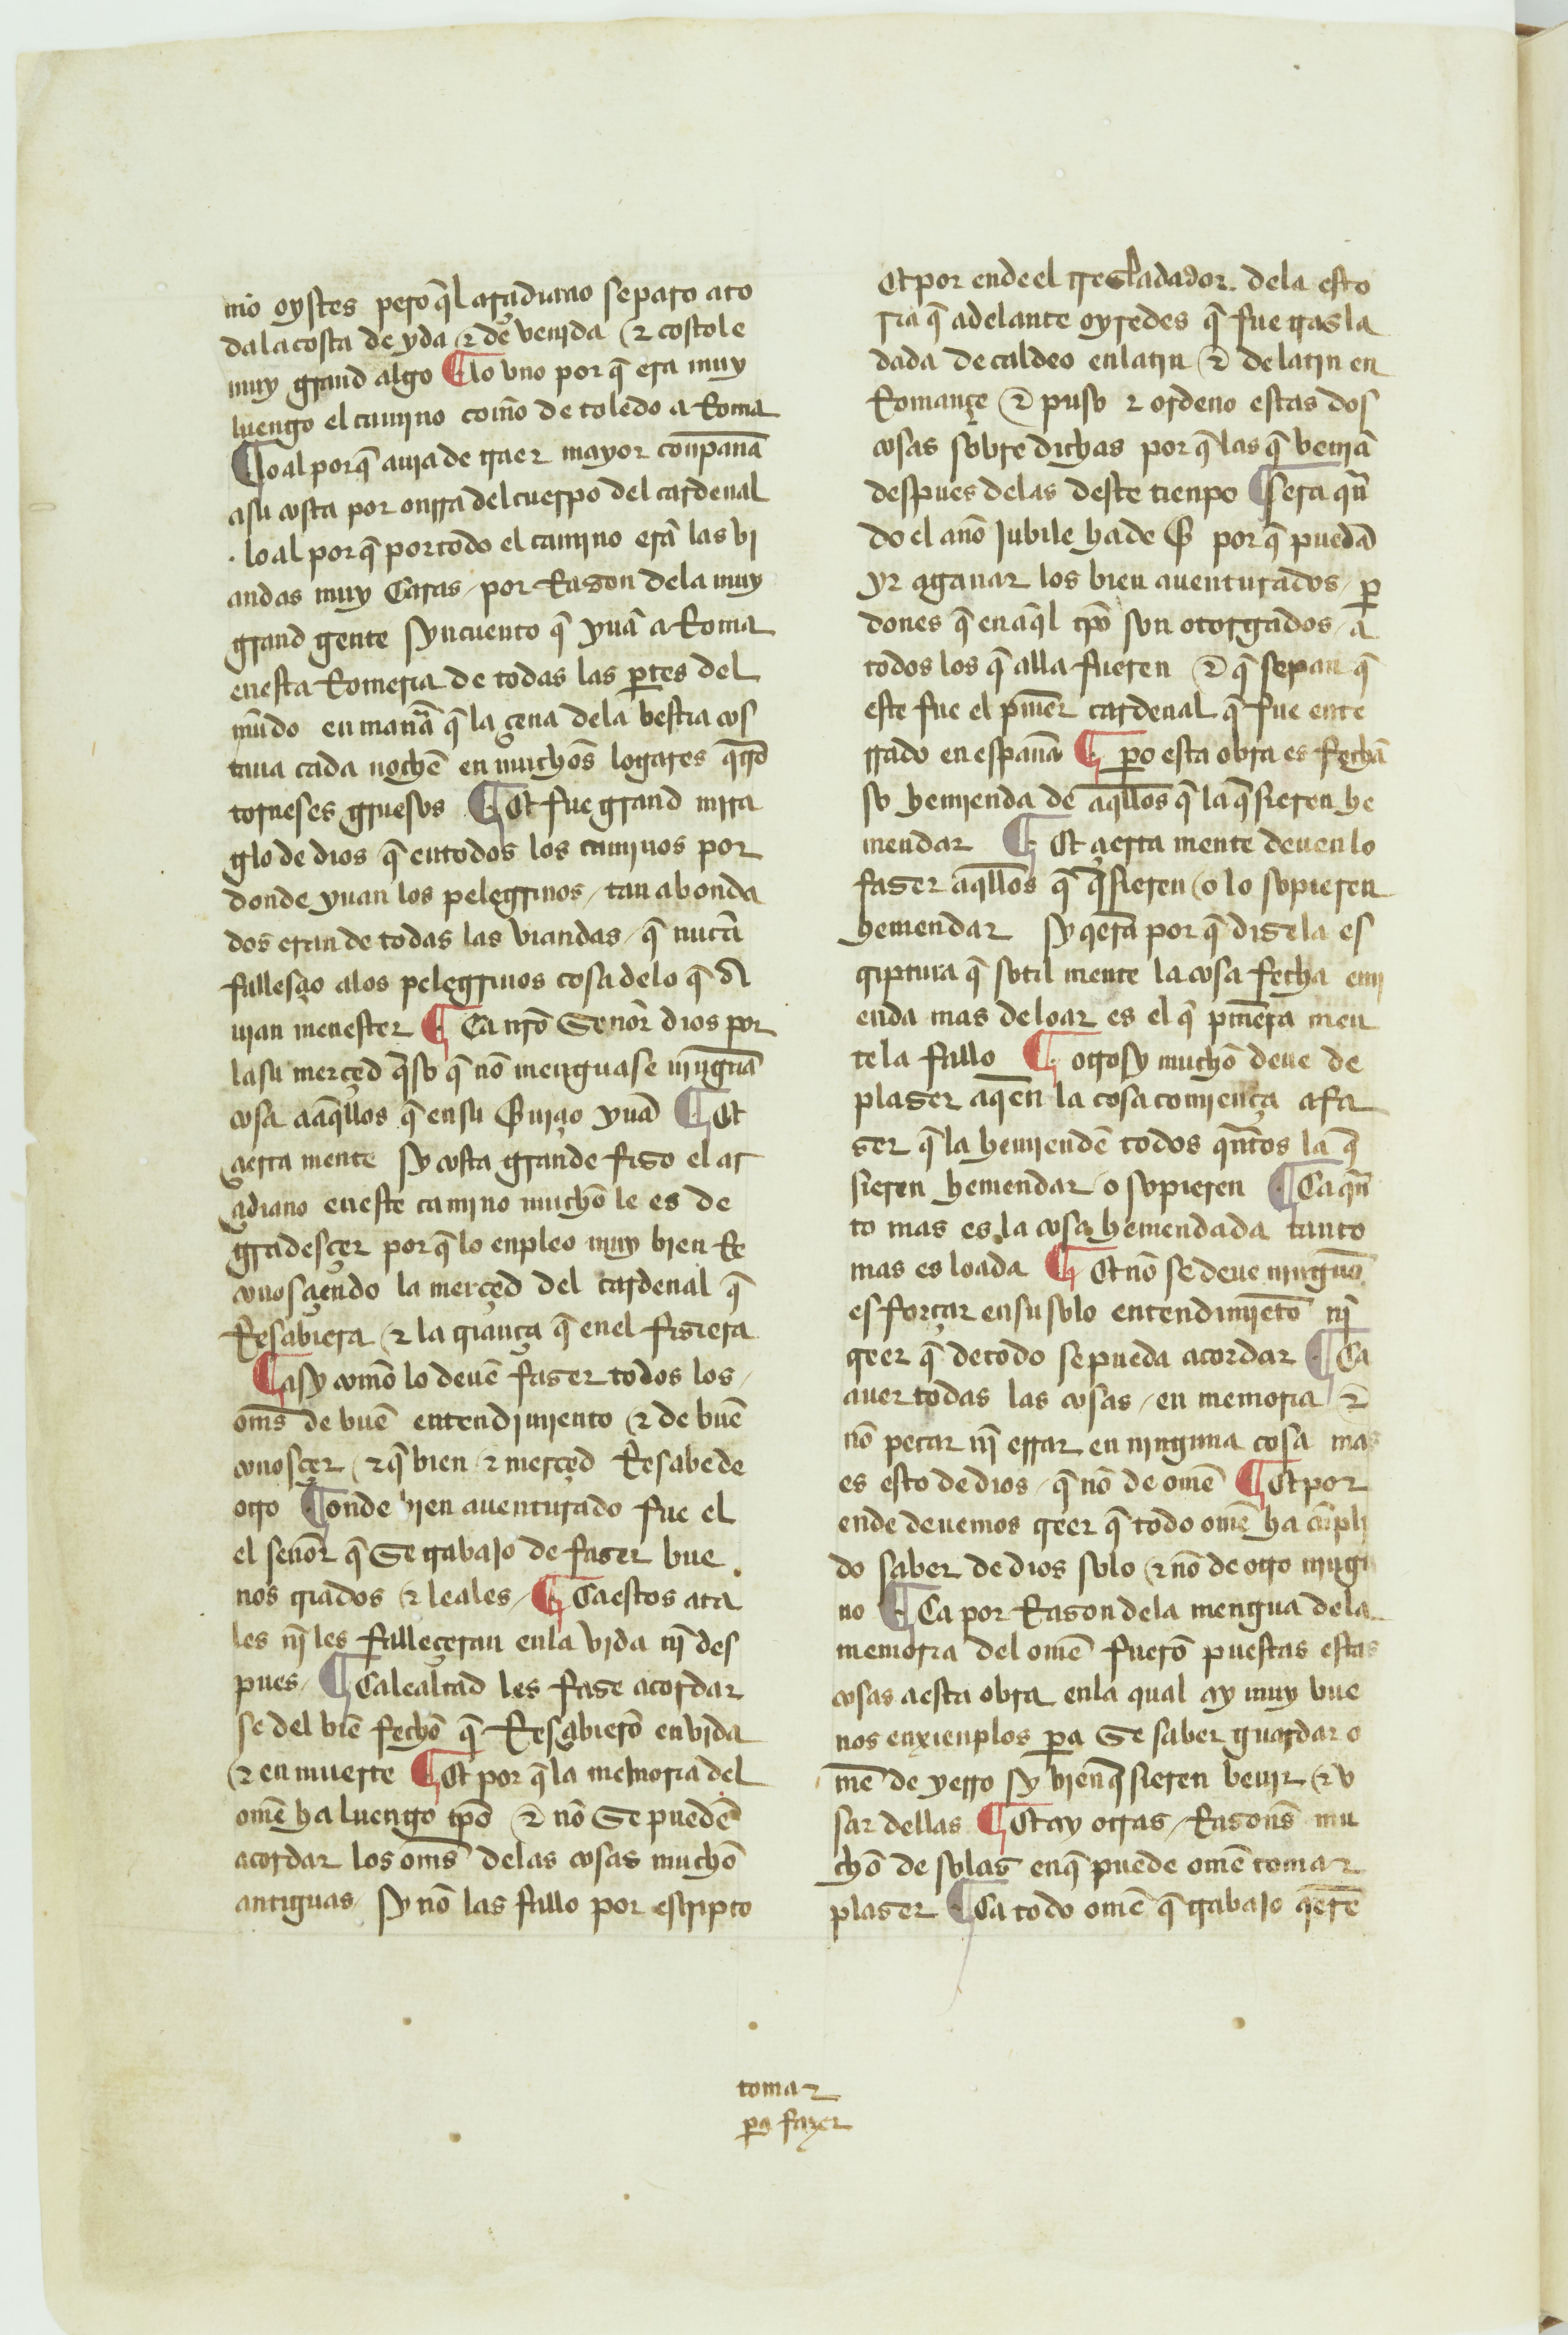 mo oystes pero q̃l arçidiano se paro a to
da la costa de yda ⁊ de venida ⁊ costole
muy grand algo ¶ lo vno por q̃ era muy
luengo el camino com̃o de toledo a Roma
¶ lo al porq̃ auia de traer mayor conpan̄a
a su costa por onrra del cuerpo del cardenal
. lo al por q̃ por todo el camino erã las vi
andas muy Caras / por Razon dela muy
grand gente syn cuento q̃ yuã a Roma
en esta Romeria de todas las ꝑtes del
mũdo en man̄a q̃ la çena dela bestia cos
taua cada noche en muchos logares qͣtro
torneses gruesos ¶ Et fue grand mira
glo de dios q̃ en todos los caminos por
donde yuan los pelegrinos / tan abonda
dos eran de todas las viandas / q̃ nũca
fallesçio alos pelegrinos cosa delo q̃ a
uian menester ¶ Ca nr̃o Sen̄or dios por
la su merçed q̃so q̃ nõ menguase ningũa
cosa a aq̃llos q̃ en su ẜuiçio yuã ¶ Et
çierta mente sy costa grande fizo el ar
çidiano en este camino mucho le es de
gradesçer por q̃ lo enpleo muy bien Re
conosçiendo la merçed del cardenal q̃
Resçibiera ⁊ la criança q̃ en el fiziera
¶ asy com̃o lo deuẽ fazer todos los /
om̃s de buẽ entendimiento ⁊ de buẽ
conosçer / ⁊ q̃ bien ⁊ merçed Resçibe de
otro ¶ onde bien auenturado fue el
el sen̄or q̃ Se trabajo de fazer bue
nos criados ⁊ leales / ¶ Ca estos ata
les nĩ les falleçeran en la vida nĩ des
pues / ¶ Ca lealtad les faze acordar
se del biẽ fecho q̃ Resçibierõ en vida
⁊ en muerte ¶ Et por q̃ la memoria del
om̃e ha luengo tp̃o ⁊ nõ Se puedẽ
acordar los om̃s delas cosas mucho
antiguas / sy nõ las fallo por escripto
Et por ende el trasladador . dela esto
ria q̃ adelante oyredes q̃ fue trasla
dada de caldeo en latin ⁊ de latin en
Romançe ⁊ puso ⁊ ordeno estas dos
cosas sobre dichas por q̃ las q̃ verniã
despues delas deste tienpo ¶ sera qñ
do el an̄o Jubile ha de ẜ por q̃ puedã
yr a ganar los bien auenturados / ꝑ
dones q̃ en aq̃l tp̃o son otorgados / a
todos los q̃ alla fueren ⁊ q̃ sepan q̃
este fue el pͥmer cardenal q̃ fue ente
rrado en espan̄a ¶ ꝑo esta obra es fecha
so hemienda de aq̃llos q̃ la q̃sieren he
mendar ¶ Et çierta mente deuen lo
fazer aq̃llos q̃ q̃sieren / o lo sopieren
hemendar sy q̃era por q̃ dize la es
criptura q̃ sotil mente la cosa fecha emi
enda mas de loar es el q̃ pͥmera men
te la fallo ¶ otrosy mucho deue de
plazer a q̃en la cosa comiença a fa
zer q̃ la hemiendẽ todos qͣntos la q̃
sieren hemendar / o sopieren ¶ Ca qͣn
to mas es la cosa hemendada tanto
mas es loada ¶ Et nõ se deue ninguno
esforçar en su solo entendimiẽto nĩ
creer q̃ de todo se pueda acordar ¶ Ca
auer todas las cosas / en memoria ⁊
nõ pecar nĩ errar en ninguna cosa mas
es esto de dios / q̃ nõ de om̃e ¶ Et por
ende deuemos creer q̃ todo om̃e ha cũpli
do saber de dios solo ⁊ nõ de otro ningu
no ¶ Ca por Razon dela mengua dela
memoria del om̃e fuerõ puestas estas
cosas a esta obra en la qual ay muy bue
nos enxienplos ꝑa Se saber guardar o
m̃e de yerro sy bien q̃sieren beuir ⁊ v
sar dellas ¶ Et ay otras / Razones mu
cho de solas en q̃ puede om̃e tomar
plazer ¶ Ca todo om̃e q̃ trabajo q̃ere
tomar
ꝑa fazer